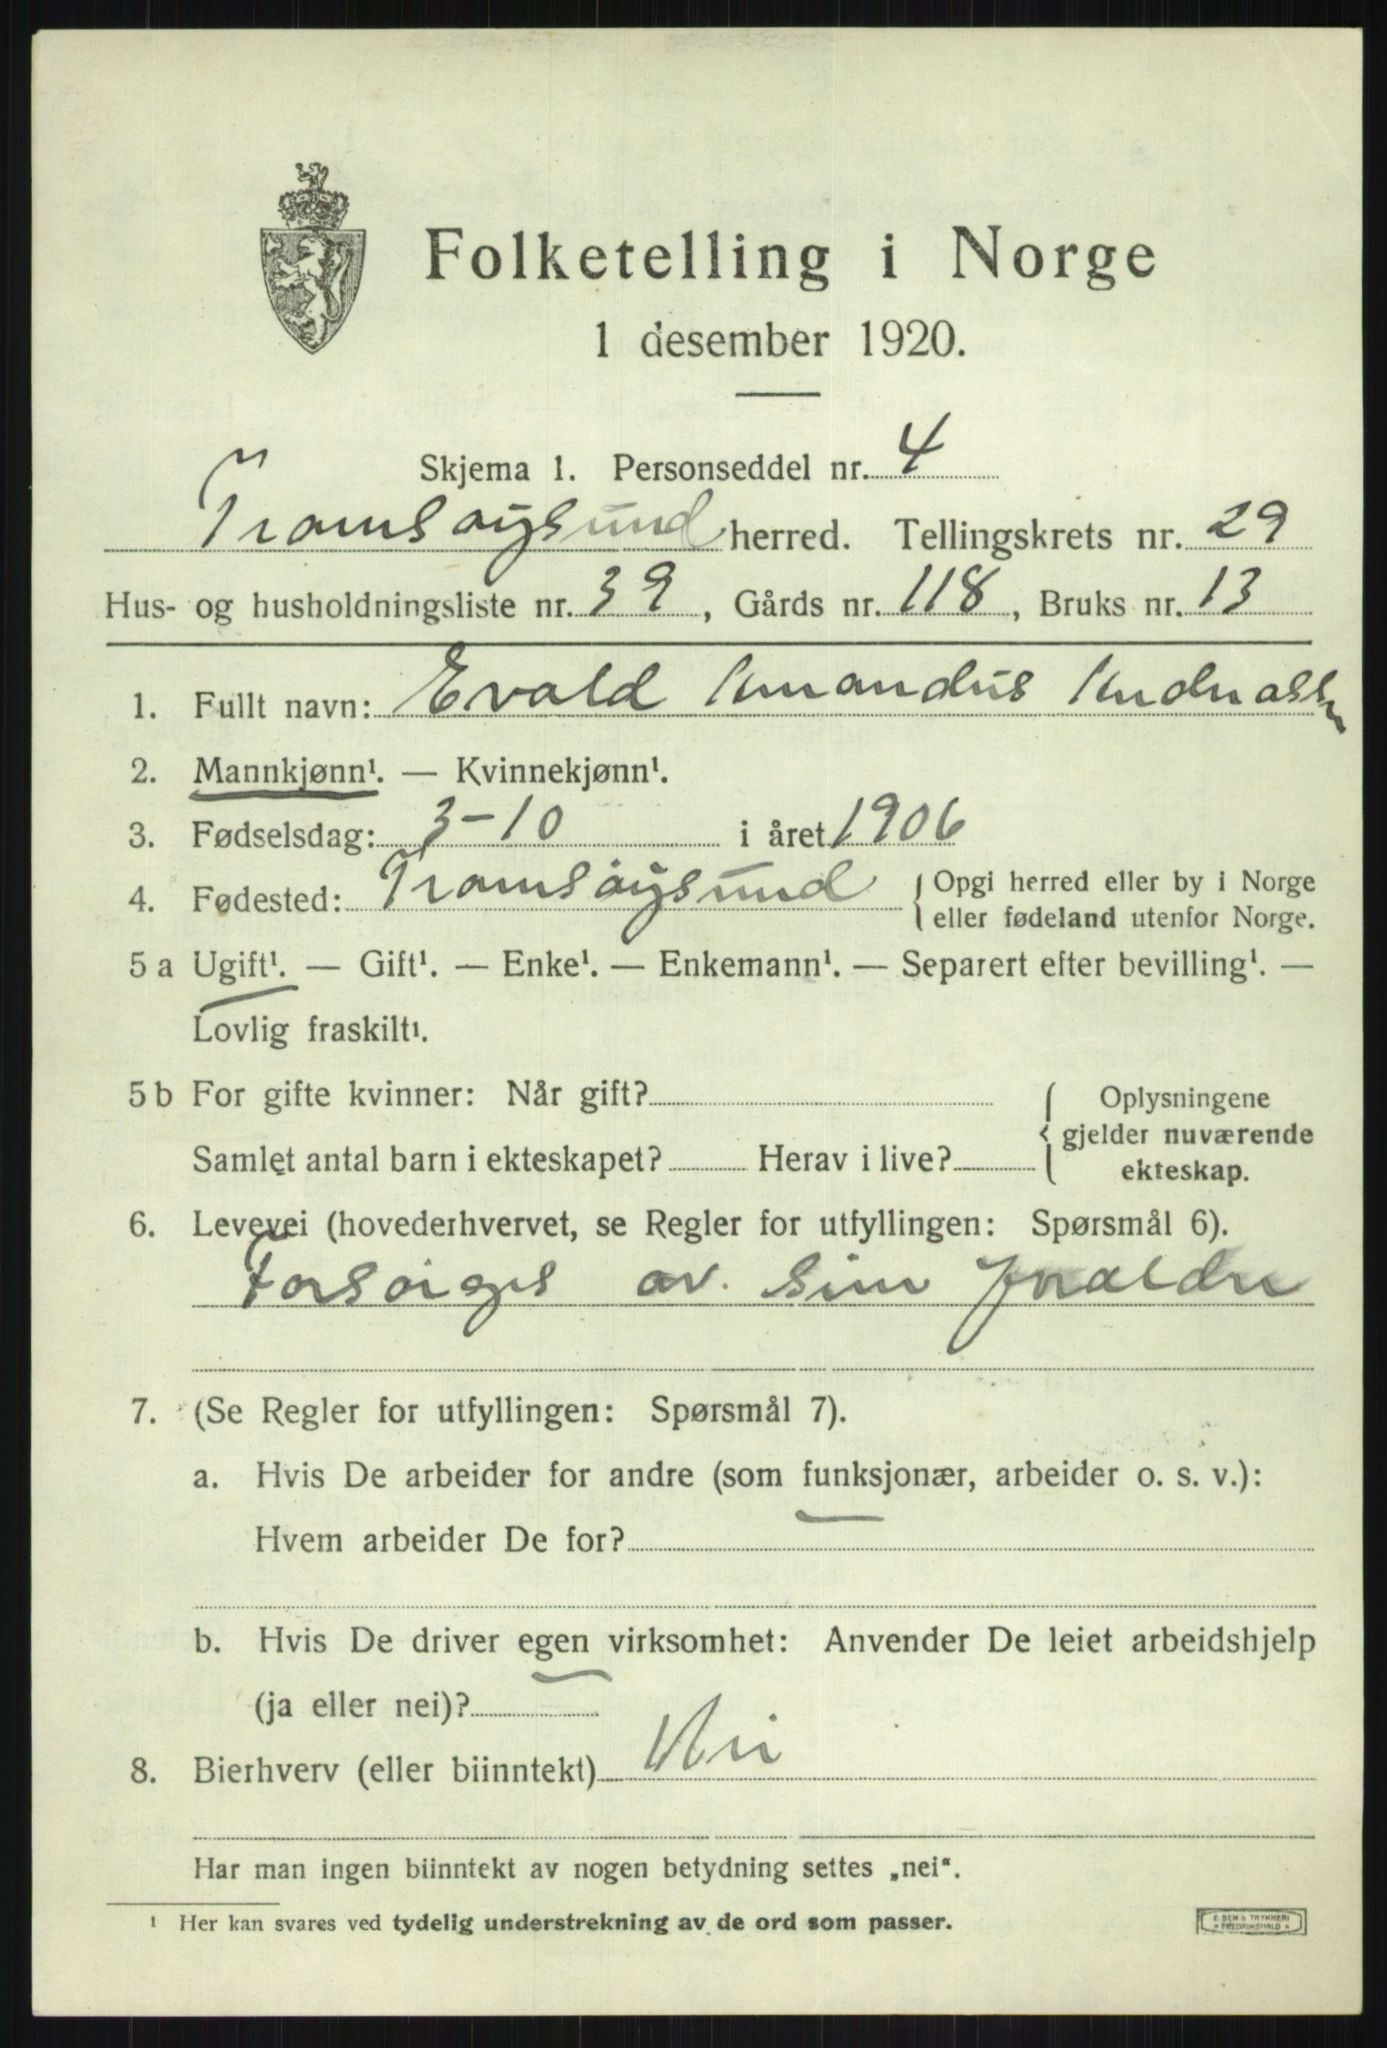 Folketelling i Norge
1 desember 1920.
Skjema 1. Personseddel nr. 4
Tromsøysund herred. Tellingskrets nr. 29
Hus- og husholdningsliste nr. 39, Gårds nr. 118, Bruks nr. 13
1. Fullt navn: Evald Amandus Andreassen
2. Mannkjønn¹. — Kvinnekjønn¹.
3. Fødselsdag: 3-10 i året 1906
4. Fødested: Tromsøysund { Opgi herred eller by i Norge
eller fødeland utenfor Norge.
5 a Ugift¹. — Gift¹. — Enke¹. — Enkemann¹. — Separert efter bevilling¹. —
Lovlig fraskilt¹.
5 b For gifte kvinner: Når gift? { Oplysningene
gjelder nuværende
Samlet antal barn i ekteskapet? Herav i live?
ekteskap.
6. Levevei (hovederhvervet, se Regler for utfyllingen: Spørsmål 6).
Forsørges av sine
7. (Se Regler for utfyllingen: Spørsmål 7).
a. Hvis De arbeider for andre (som funksjonær, arbeider o. s. v.):
Hvem arbeider De for?
b. Hvis De driver egen virksomhet: Anvender De leiet arbeidshjelp
(ja eller nei)?
8. Bierhverv (eller biinntekt) Nei
Har man ingen biinntekt av nogen betydning settes „nei“.
¹ Her kan svares ved tydelig understrekning av de ord som passer.
E. SEM'S TRYKKERI
* FREDRIKSHALD *